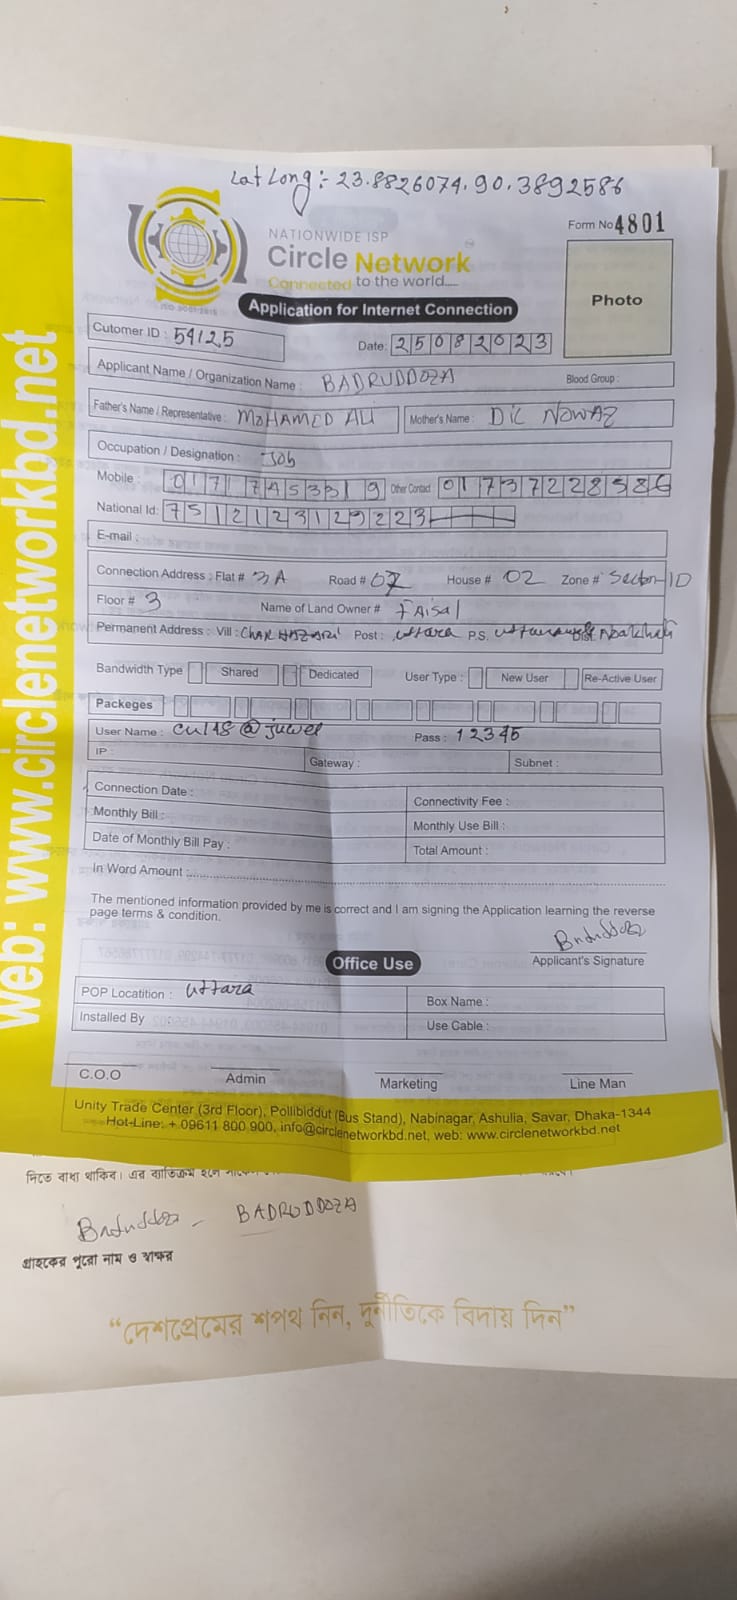 Lat Long:- 23.8826074.90.3892586
Form No 4801
NATIONWIDE ISP
Circle Network
Connected to the world....
ISO 9001:2015
Application for Internet Connection
Photo
Cutomer ID : 54125
Date: 25082023
Applicant Name / Organization Name : BADRUDDOZA Blood Group :
Father's Name / Representative : MOHAMED ALI Mother's Name : DIL NOWAZ
Occupation / Designation : Job
Mobile : 0177453319 Other Contact 01737228586
National Id: 7512123129223
E-mail :
Connection Address : Flat # 3A Road # 07 House # 02 Zone # Sector-10
Floor # 3 Name of Land Owner # Faisal
Permanent Address : Vill : CHAR HAZARI Post : uttara P.S. Dist. Noakhali
Bandwidth Type Shared Dedicated User Type : New User Re-Active User
Packeges
User Name : cu18@juwel Pass : 12345
IP : Gateway : Subnet :
Connection Date : Connectivity Fee :
Monthly Bill : Monthly Use Bill :
Date of Monthly Bill Pay : Total Amount :
In Word Amount :
The mentioned information provided by me is correct and I am signing the Application learning the reverse
page terms & condition.
Badruddoza
Applicant's Signature
Office Use
POP Locatition : uttara Box Name :
Installed By Use Cable :
C.O.O Admin Marketing Line Man
Unity Trade Center (3rd Floor), Pollibiddut (Bus Stand), Nabinagar, Ashulia, Savar, Dhaka-1344
Hot-Line: + 09611 800 900, info@circlenetworkbd.net, web: www.circlenetworkbd.net
web: www.circlenetworkbd.net
দিতে বাধ্য থাকিব। এর ব্যতিক্রম হলে
Badruddoza - BADRUDDOZA
গ্রাহকের পুরো নাম ও স্বাক্ষর
“দেশপ্রেমের শপথ নিন, দুর্নীতিকে বিদায় দিন”